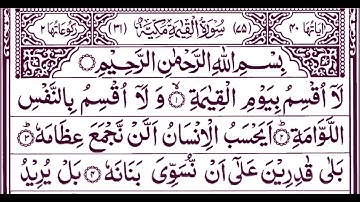 اٰيَاتُهَا ۴۰ (۷۵) سُوْرَةُ الْقِيٰمَةِ مَكِّيَّةٌ (۳۱) رُكُوْعَاتُهَا ۲
بِسْمِ اللّٰهِ الرَّحْمٰنِ الرَّحِيْمِ
لَاۤ اُقْسِمُ بِيَوْمِ الْقِيٰمَةِ ۙ۱ وَ لَاۤ اُقْسِمُ بِالنَّفْسِ
اللَّوَّامَةِ ۲ اَيَحْسَبُ الْاِنْسَانُ اَلَّنْ نَّجْمَعَ عِظَامَهٗ ۳
بَلٰى قٰدِرِيْنَ عَلٰۤى اَنْ نُّسَوِّيَ بَنَانَهٗ ۴ بَلْ يُرِيْدُ